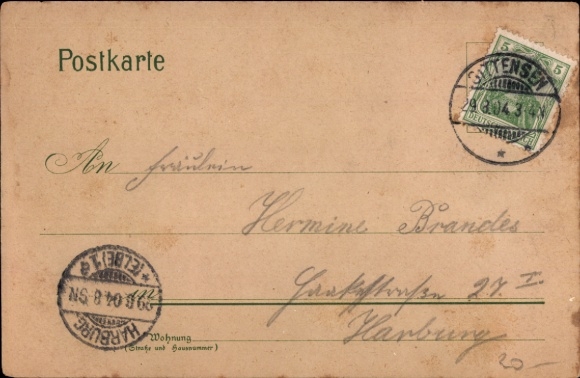 Postkarte
5 5
SITTENSEN
29.8.04.3-4N
DEUTSCHES REICH
An Fräulein
Hermine Brandes
27 I
in Harburg
HARBURG (ELBE) 1 a
29.8.04.8-9N
Wohnung
(Straße und Hausnummer)
20-